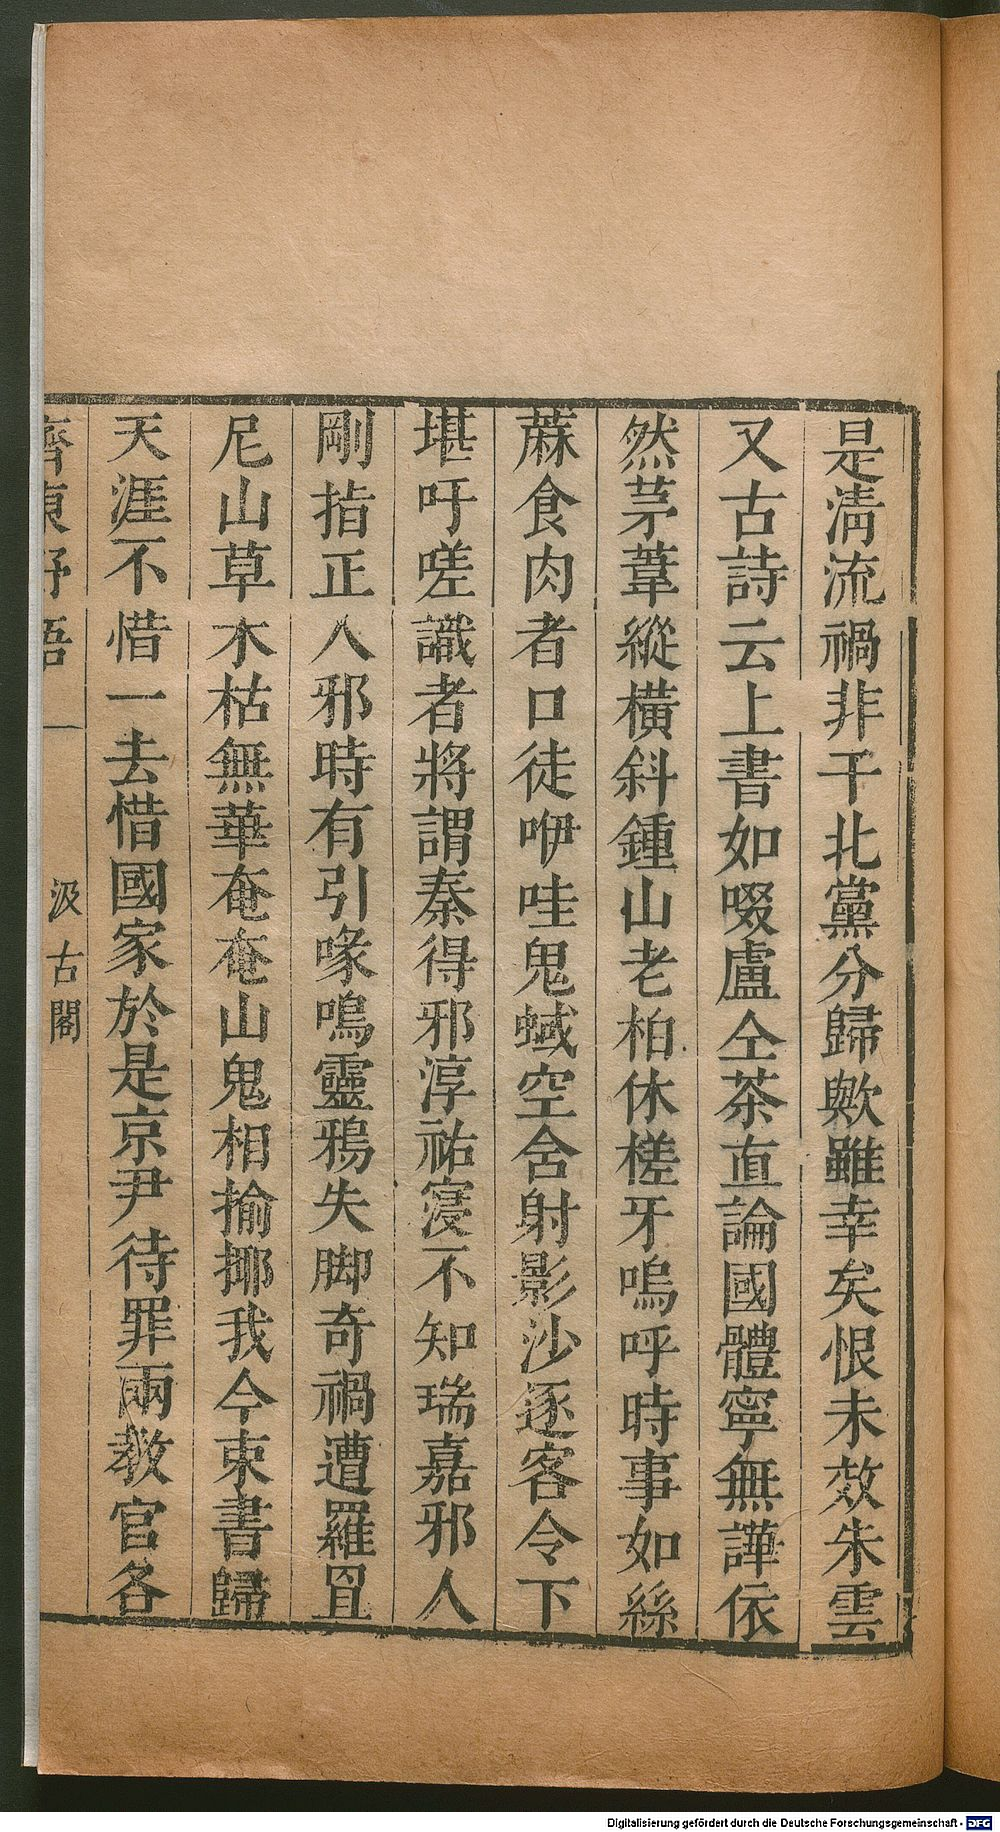 是淸流禍非干北黨分歸歟雖幸矣恨未效朱雲
又古詩云上書如啜盧仝茶直論國體寧無譁依
然茅葦縱橫斜鍾山老柏休槎牙嗚呼時事如絲
蔴食肉者口徒咿哇鬼蜮空舍射影沙逐客令下
堪吁嗟識者將謂秦得邪淳祐寖不知瑞嘉邪人
剛指正人邪時有引喙鳴靈鴉失脚奇禍遭羅罝
尼山草木枯無華奄奄山鬼相揄揶我今束書歸
天涯不惜一去惜國家於是京尹待罪兩教官各
齊東野語
汲古閣
Digitalisierung gefördert durch die Deutsche Forschungsgemeinschaft - DFG